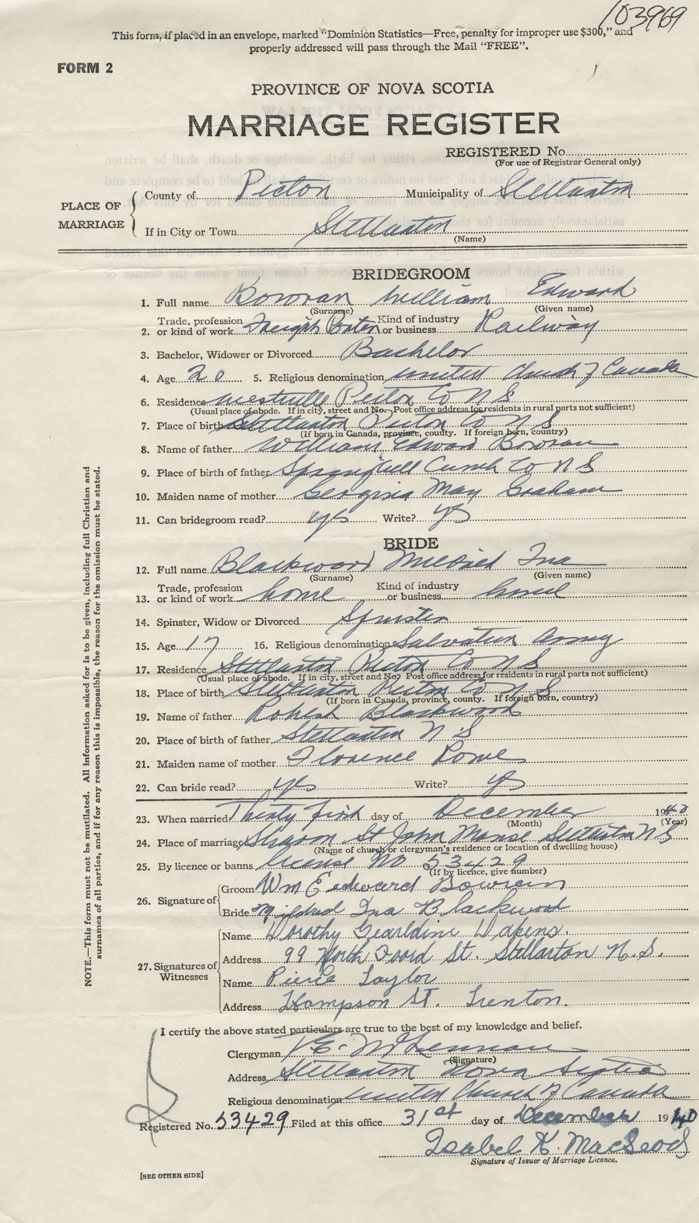 103969
This form, if placed in an envelope, marked "Dominion Statistics—Free, penalty for improper use $300," and
properly addressed will pass through the Mail "FREE".
FORM 2
PROVINCE OF NOVA SCOTIA
MARRIAGE REGISTER
REGISTERED No.
(For use of Registrar General only)
PLACE OF MARRIAGE
County of Pictou Municipality of Stellarton
If in City or Town Stellarton
(Name)
BRIDEGROOM
1. Full name Bowran William Edward
(Surname) (Given name)
Trade, profession Kind of industry
2. or kind of work Freight or business Railway
3. Bachelor, Widower or Divorced Bachelor
4. Age 20 5. Religious denomination United Church of Canada
6. Residence Westville Pictou Co N S
(Usual place of abode. If in city, street and No. Post office address for residents in rural parts not sufficient)
7. Place of birth Stellarton Pictou Co N S
(If born in Canada, province, county. If foreign born, country)
8. Name of father William Edward Bowran
9. Place of birth of father Springhill Cumb Co N S
10. Maiden name of mother Georgina May Graham
11. Can bridegroom read? yes Write? yes
BRIDE
12. Full name Blackwood Mildred Ina
(Surname) (Given name)
Trade, profession Kind of industry
13. or kind of work home or business home
14. Spinster, Widow or Divorced Spinster
15. Age 17 16. Religious denomination Salvation Army
17. Residence Stellarton Pictou Co N S
(Usual place of abode. If in city, street and No. Post office address for residents in rural parts not sufficient)
18. Place of birth Stellarton Pictou Co N S
(If born in Canada, province, county. If foreign born, country)
19. Name of father Robert Blackwood
20. Place of birth of father Stellarton N S
21. Maiden name of mother Florence Rowe
22. Can bride read? yes Write? yes
23. When married Thirty first day of December 1940
(Month) (Year)
24. Place of marriage Sharon St John Manse Stellarton N S
(Name of church or clergyman's residence or location of dwelling house)
25. By licence or banns license No 53429
(If by licence, give number)
26. Signature of
Groom Wm Edward Bowran
Bride Mildred Ina Blackwood
27. Signatures of Witnesses
Name Dorothy Gearldine
Address 99 North Foord St. Stellarton N.S.
Name Pierce Taylor
Address Hampson St. Trenton.
I certify the above stated particulars are true to the best of my knowledge and belief.
Clergyman McLennan
(Signature)
Address Stellarton Nova Scotia
Religious denomination United Church of Canada
Registered No. 53429 Filed at this office 31st day of December 1940
Isabel K. MacLeod
Signature of Issuer of Marriage Licence.
[SEE OTHER SIDE]
NOTE.—This form must not be mutilated. All information asked for is to be given, including full Christian and
surnames of all parties, and if for any reason this is impossible, the reason for the omission must be stated.